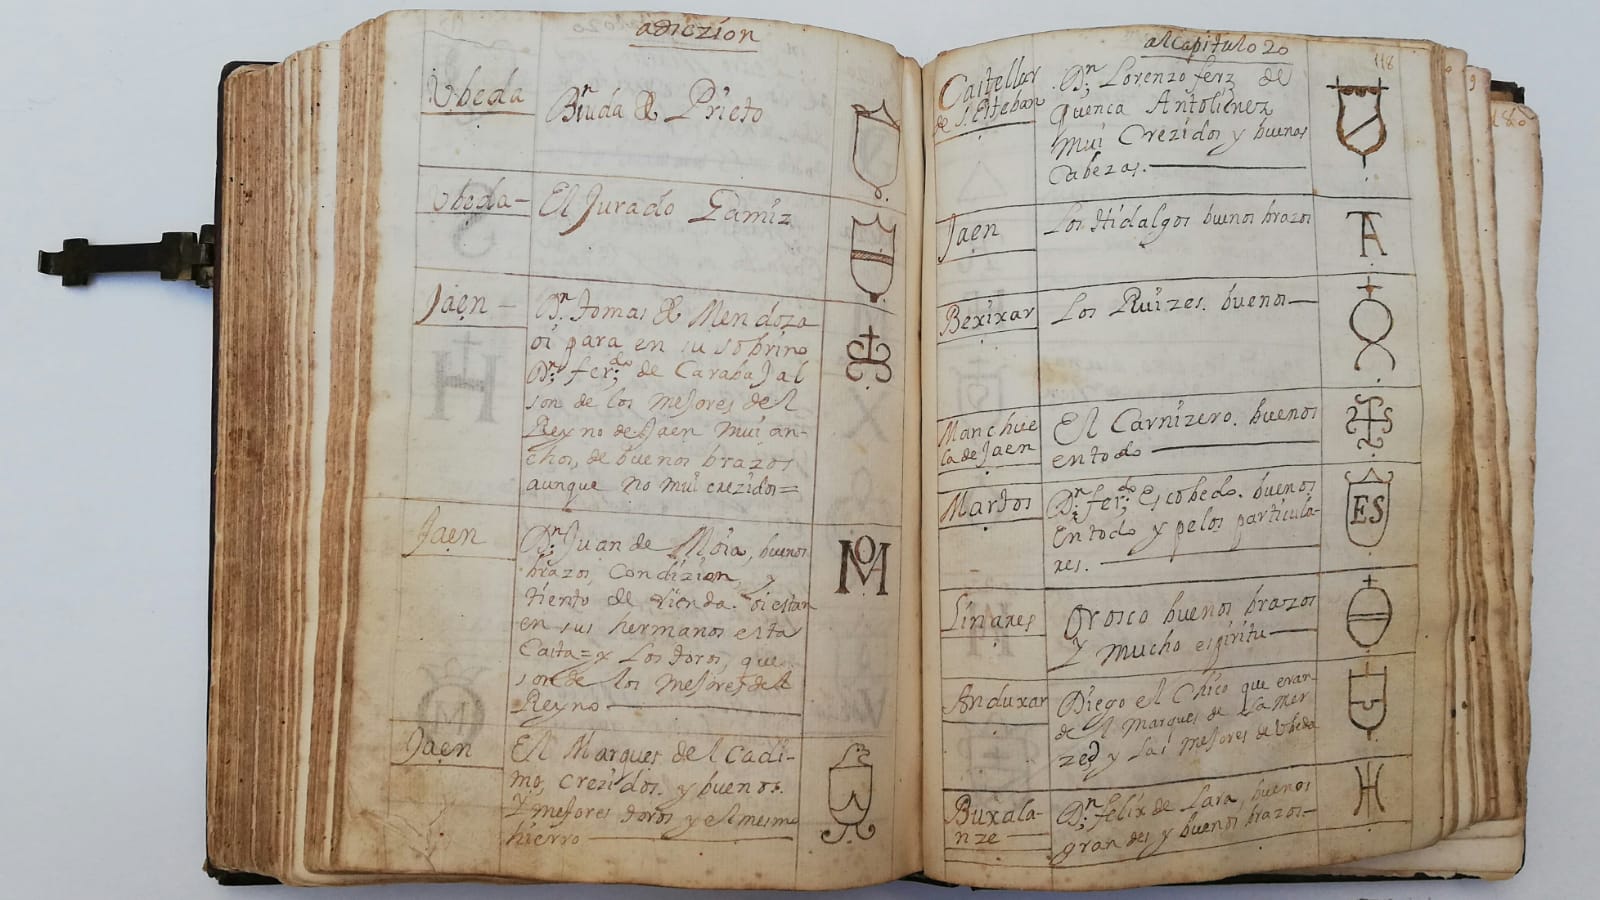 adiczion
Vbeda
Biuda de Prieto
Vbeda-
El Jurado Gamiz
Jaen-
Dn. tomas de Mendoza
oi para en su sobrino
Dn. ferdo. de Carabajal
son de los mejores del
Reyno de Jaen mui an-
chos, de buenos brazos
aunque no mui crezidos=
Jaen
Dn. Juan de Moia, buenos
brazos, Condizion, y
tiento de rienda. oi estan
en sus hermanos esta
Casta=y Los toros, que
son de los mejores del
Reyno
MOA
Jaen
El Marques del Cadi-
mo, crezidos. y buenos.
Y mejores toros y el mesmo
hierro
al capitulo 20
118
Castellar
de S. Esteban
Dn. Lorenzo ferz de
Quenca Antolinez
mui Crezidos y buenas
Cabezas.
Jaen
Los Hidalgos buenos brazos
TA
Bexixar
Los Ruizes. buenos
Manchue
la de Jaen
El Carnizero. buenos
en todo
S
Martos
Dn. ferdo. Escobedo. buenos
En todo y pelos particula-
res.
ES
Linares
Orosco buenos brazos
Y mucho espiritu
Anduxar
Diego el Chico que eran
del Marques de La Mer
zed y Las mejores de Vbeda
Buxala-
nze
Dn. felix de Lara, buenos
grandes y buenos brazos
H
180